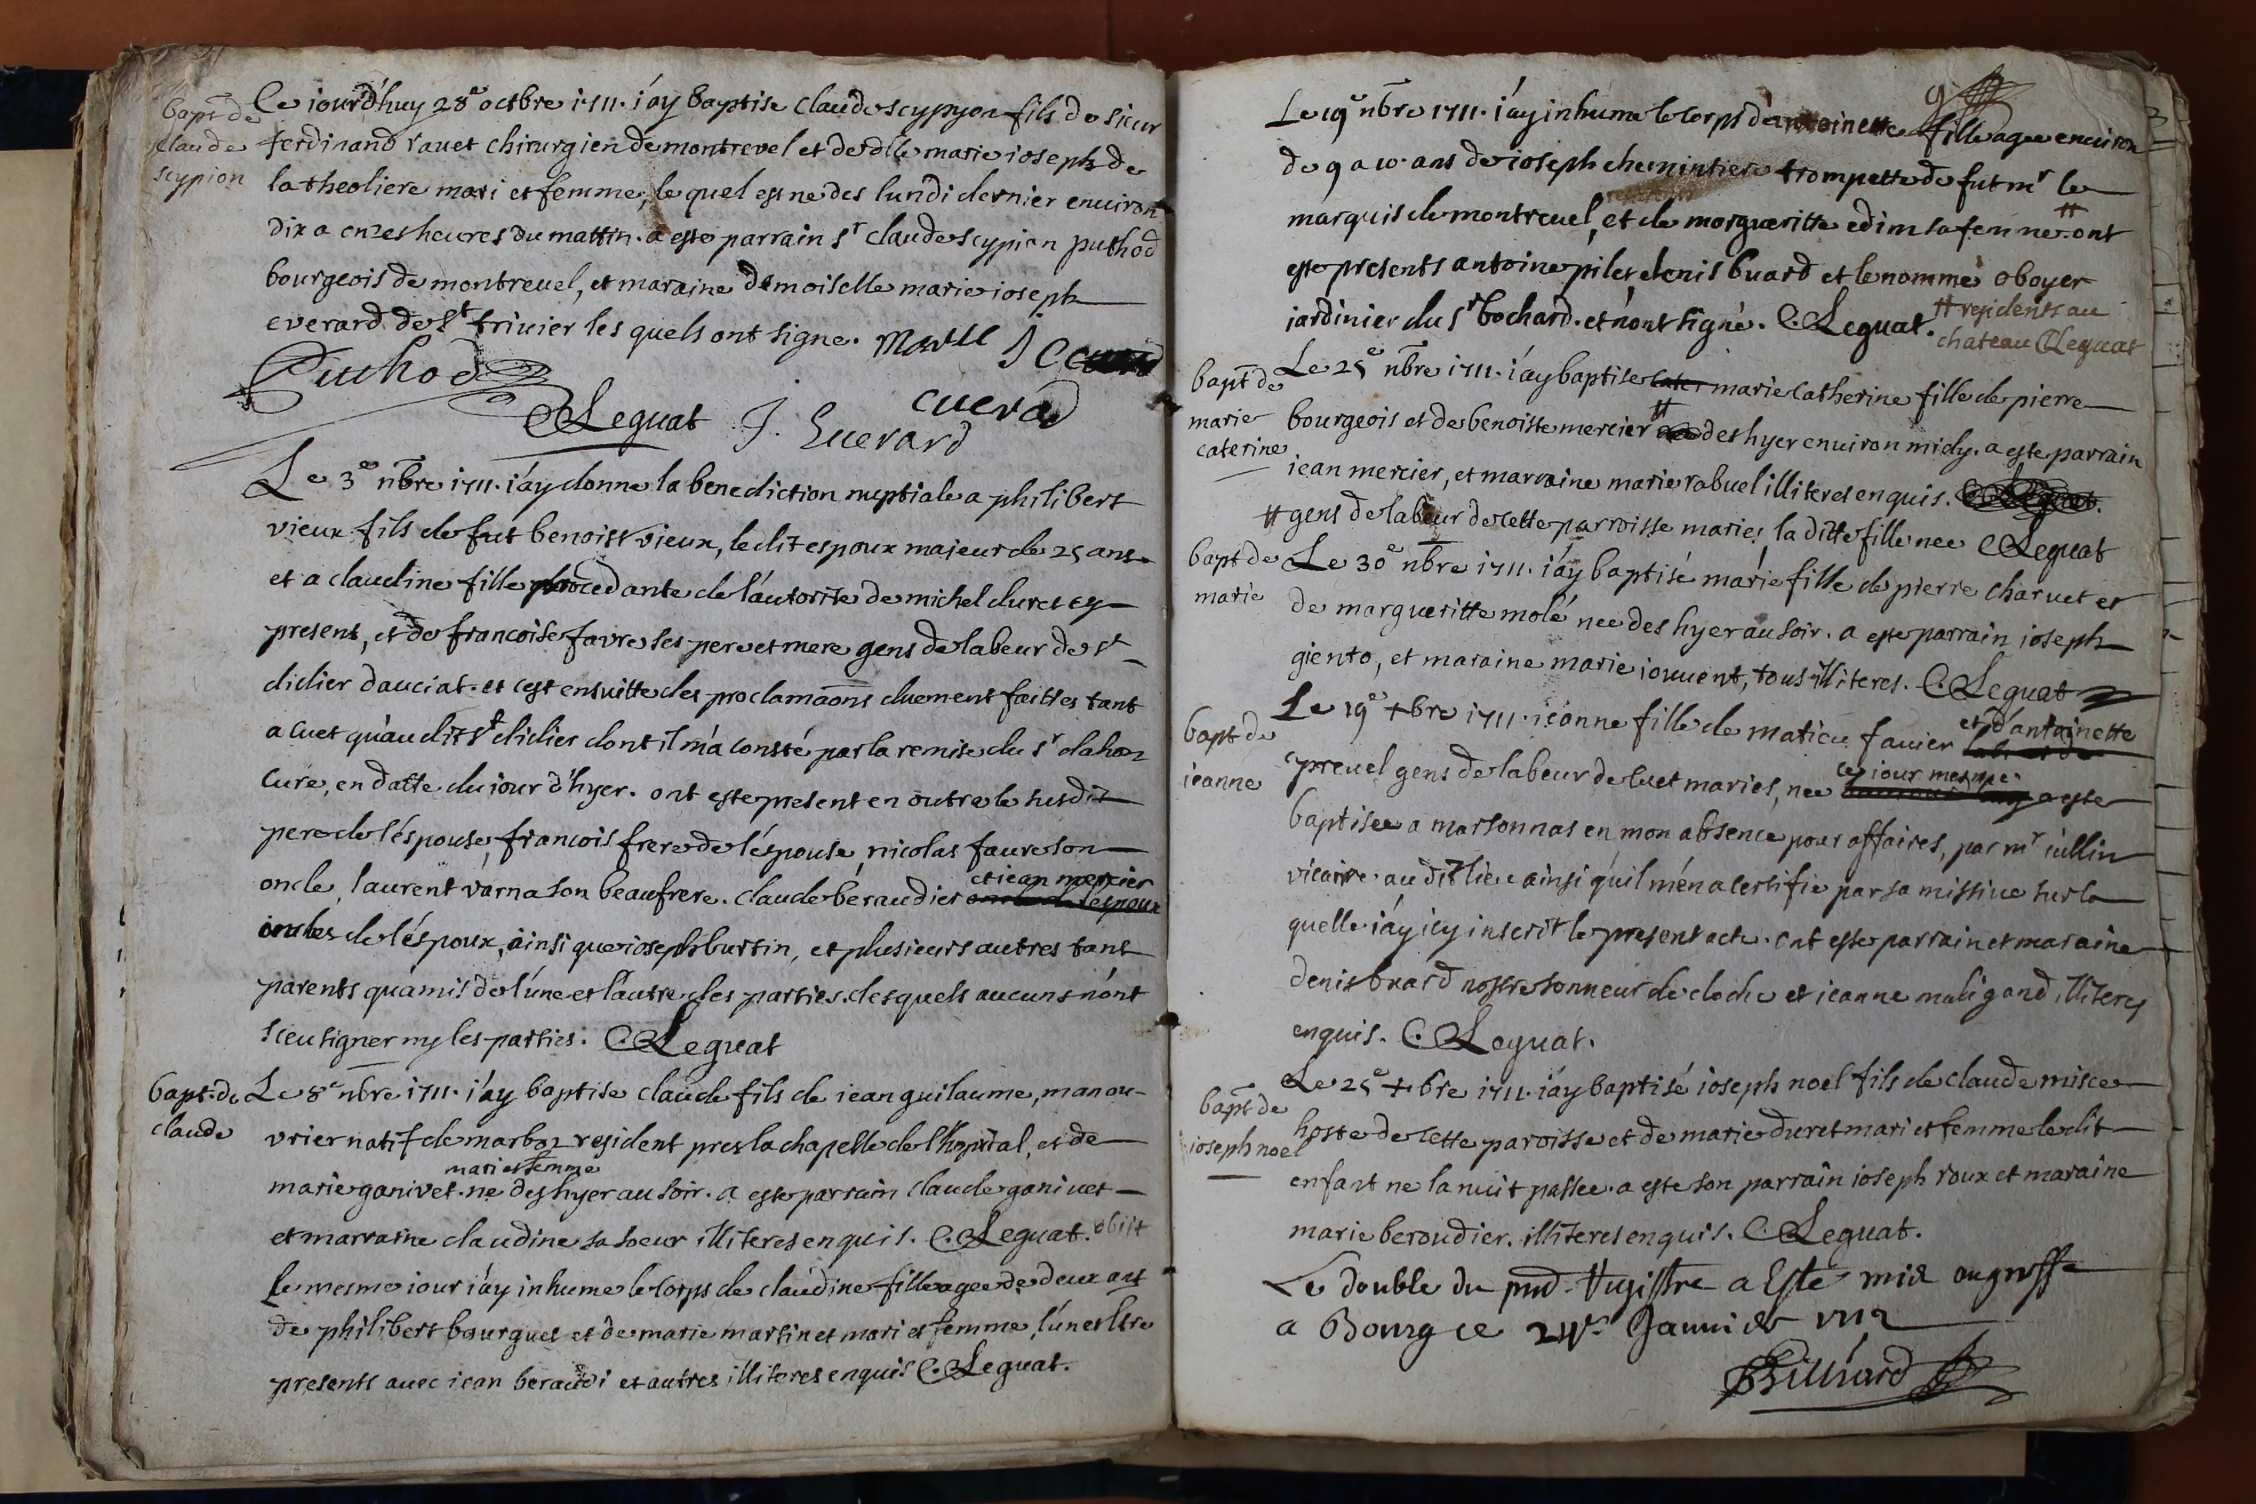 bapt de
claude
scypion
Ce iourd'huy 28e octbre 1711. i'ay baptise claude scypyon fils de sieur
ferdinand rauet chirurgien de montrevel et de dlle marie ioseph de
la theoliere mari et femme, le quel est ne des lundi dernier environ
dix a onzes heures du mattin. a este parrain sr claude scypion puthod
bourgeois de montreuel, et maraine demoiselle marie ioseph
everard de st trivier les quels ont signe.
Puthod
CLeguat J. Everard
Le 3e nbre 1711. i'ay donne la benediction nuptiale a philibert
vieux fils de fut benoist vieux, le dit espoux majeur de 25 ans
et a claudine fille procedante de l'autorite de michel duret cy
present, et de francoise favre ses pere et mere gens de labeur de st
didier d'auciat. et c'est ensuitte des proclamaons duement faittes tant
a cuet qu'au dit st didier dont il m'a consté par la remise du sr dahon
curé, en datte du iour d'hyer. ont este present en outre le susdit
pere de l'espouse, francois frere de l'espouse, nicolas faure son
et iean mercier
oncle, laurent varna son beaufrere. claude beraudier
oncles de l'espoux, ainsi que ioseph burtin, et plusieurs autres tant
parents qu'amis de l'une et l'autre des parties. desquels aucuns n'ont
sceu signer ny les parties. CLeguat
bapt. de
claude
Le 8e nbre 1711. i'ay baptise claude fils de iean guilaume, manou-
vrier natif de marboz resident pres la chapelle de l'hopital, et de
mari et femme
marie ganivet. ne des hyer au soir. a este parrain claude ganivet
et marraine claudine sa soeur illiteres enquis. C.Leguat. obiit
Le mesme iour i'ay inhume le corps de claudine fille agee de deux ans
de philibert bourguet et de marie martinet mari et femme, l'un et l'tre
presents avec iean beraudi et autres illiteres enquis C.Leguat.
9
Le 19e nbre 1711. i'ay inhume le corps d'antoinette fille agee environ
de 9 a 10 ans de ioseph chemintiere trompette de fut mr le
marquis de montreuel, et de margueritte edim sa femme # ont
este presents antoine pilet, denis buard et le nommé oboyer
jardinier du sr bochard. et n'ont signé. C.Leguat.
# residents au
chateau CLeguat
bapt de
marie
caterine
Le 25e nbre 1711. i'ay baptise marie catherine fille de pierre
bourgeois et de benoiste mercier # des hyer environ midy. a este parrain
iean mercier, et marraine marie rabuel illiteres enquis.
# gens de labeur de cette parroisse maries, la ditte fille nee CLeguat
bapt de
marie
Le 30e nbre 1711. i'ay baptisé marie fille de pierre charvet et
de margueritte molé nee des hyer au soir. a este parrain ioseph
giento, et maraine marie iouuent, tous illiteres. C.Leguat
bapt de
ieanne
Le 19e +bre 1711. ieanne fille de matieu favier et d'antoinette
preuel gens de labeur de cuet maries, nee ce iour mesme. a este
baptisee a marsonnas en mon absence pour affaires, par mr iullin
vicaire. au dit lieu ainsi qu'il m'en a certifie par sa missive sur la
quelle i'ay icy inscrit le present acte. ont este parrain et maraine
denis buard nostre sonneur de cloche et ieanne maligand, illiteres
enquis. C.Leguat.
bapt de
ioseph noel
Le 25e +bre 1711. i'ay baptisé ioseph noel fils de claude misce
hoste de cette paroisse et de marie duret mari et femme le dit
enfant ne la nuit passee. a este son parrain ioseph roux et maraine
marie beroudier. illiteres enquis. C.Leguat.
Le double du pnt Registre a Esté mis au greffe
a Bourg ce 24e Januier 1712
Billiard